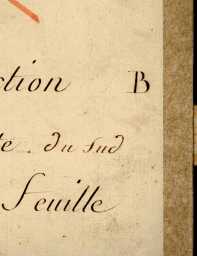 ction B
te. du Sud
Feuille